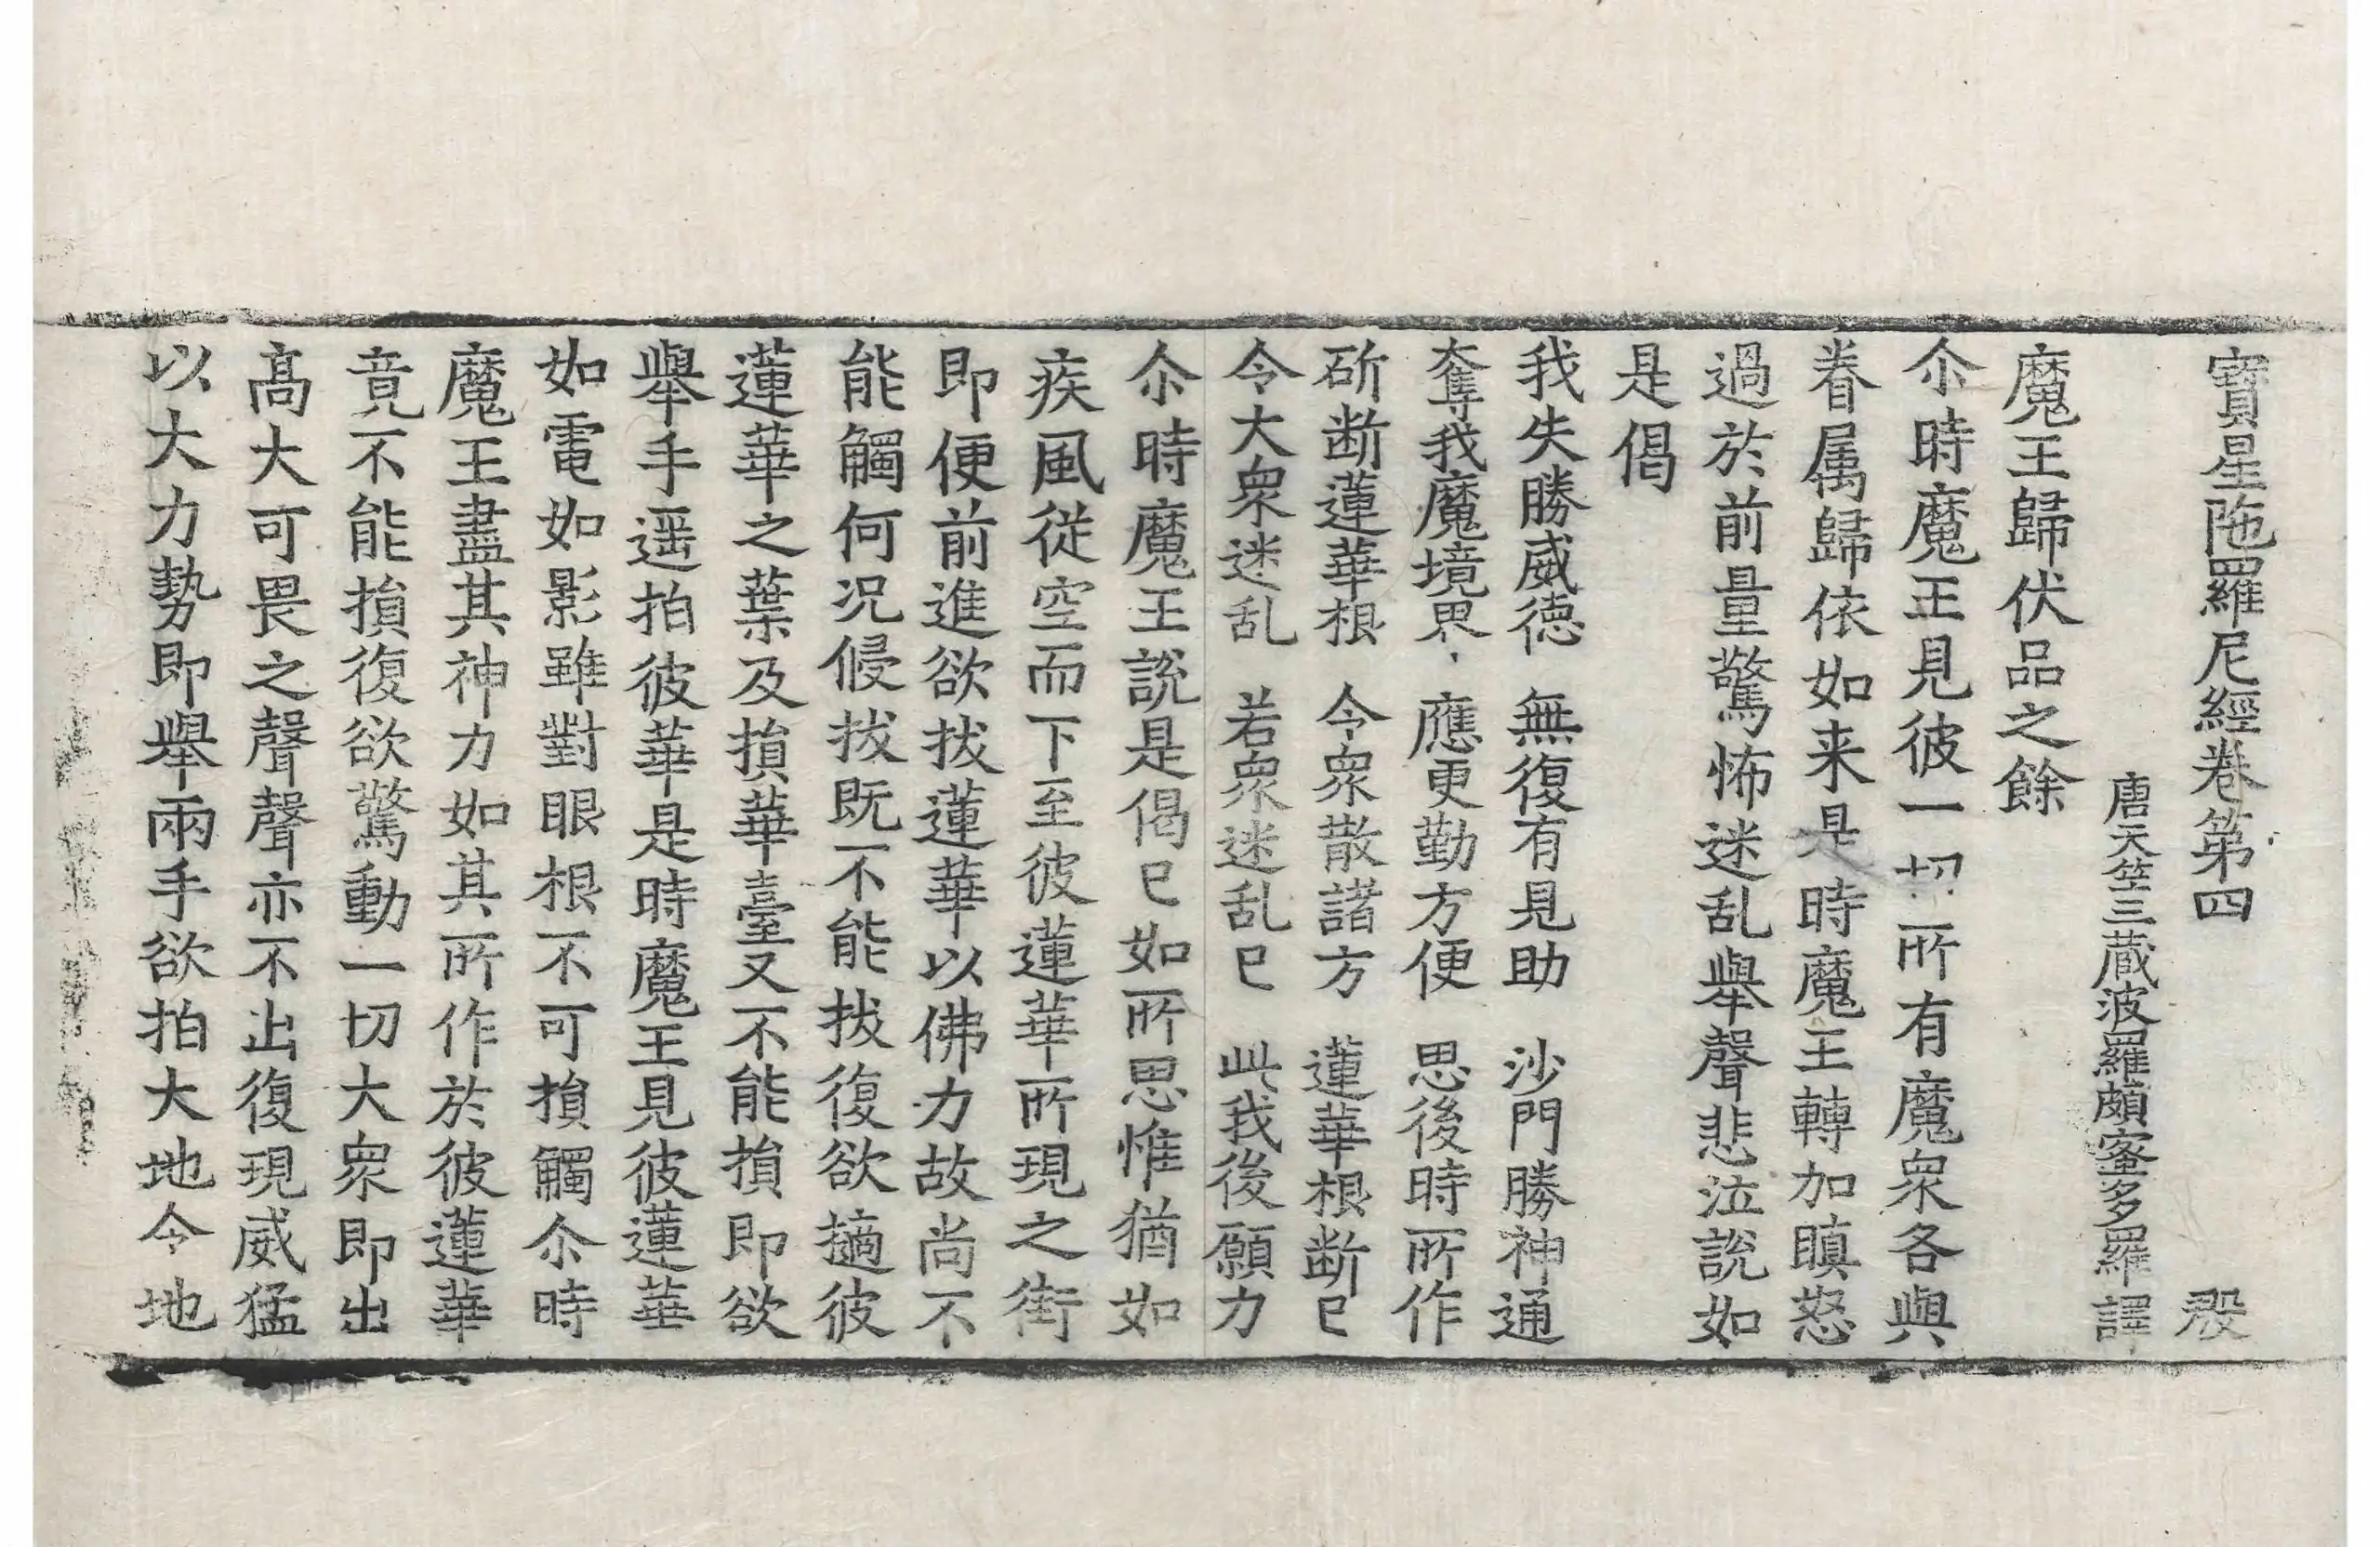 寶星陁羅尼經卷第四　殷
唐天竺三蔵波羅頗蜜多羅譯
魔王歸伏品之餘
尒時魔王見彼一切所有魔衆各與
眷属歸依如来是時魔王轉加瞋怒
過於前量驚怖迷乱舉聲悲泣說如
是偈
我失勝威德　無復有見助　沙門勝神通
奪我魔境界　應更勤方便　思後時所作
斫断蓮華根　令衆散諸方　蓮華根断已
令大衆迷乱　若衆迷乱已　此我後願力
尒時魔王說是偈已如所思惟猶如
疾風従空而下至彼蓮華所現之街
即便前進欲拔蓮華以佛力故尚不
能觸何況侵拔既不能拔復欲擿彼
蓮華之葉及損華臺又不能損即欲
舉手遥拍彼華是時魔王見彼蓮華
如電如影雖對眼根不可損觸尒時
魔王盡其神力如其所作於彼蓮華
竟不能損復欲驚動一切大衆即出
髙大可畏之聲聲亦不出復現威猛
以大力勢即舉兩手欲拍大地令地